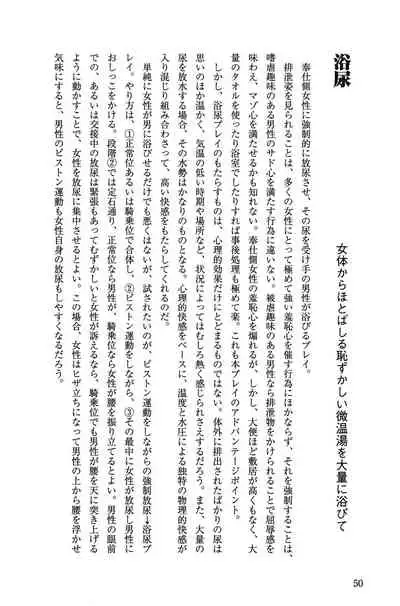 浴尿
女体からほとばしる恥ずかしい微温湯を大量に浴びて
奉仕側女性に強制的に放尿させ、その尿を受け手の男性が浴びるプレイ。
排泄姿を見られることは、多くの女性にとって極めて強い羞恥心を催す行為にほかならず、それを強制することは、
嗜虐趣味のある男性のサド心を満たす行為に違いない。被虐趣味のある男性なら排泄物をかけられることで屈辱感を
味わえ、マゾ心を満たせるかも知れない。奉仕側女性の羞恥心を煽れるが、しかし、大便ほど敷居が高くもなく、大
量のタオルを使ったり浴室でしたりすれば事後処理も極めて楽。これも本プレイのアドバンテージポイント。
しかし、浴尿プレイのもたらすものは、心理的効果だけにとどまるものではない。体外に排出されたばかりの尿は
思いのほか温かく、気温の低い時期や場所など、状況によってはむしろ熱く感じられさえするだろう。また、大量の
尿を放水する場合、その水勢はかなりのものとなる。心理的快感をベースに、温度と水圧による独特の物理的快感が
入り混じり組み合わさって、高い快感をもたらしてくれるのである。
単純に女性が男に浴びせるだけでも悪くはないが、試されたいのが、ピストン運動をしながらの強制放尿→浴尿プ
レイ。やり方は、①正常位あるいは騎乗位で合体し、②ピストン運動をしながら、③その最中に女性が放尿し男性に
おしっこをかける。段階②では定石通り、正常位なら男性が、騎乗位なら女性が腰を振り立てるとよい。男性の眼前
での、あるいは交接中の放尿は緊張もあってむずかしいと女性が訴えるなら、騎乗位でも男性が腰を天に突き上げる
ように動かすことで、女性を放尿に集中させるとよい。この場合、女性はヒザ立ちになって男性の上から腰を浮かせ
気味にすると、男性のピストン運動も女性自身の放尿もしやすくなるだろう。
50